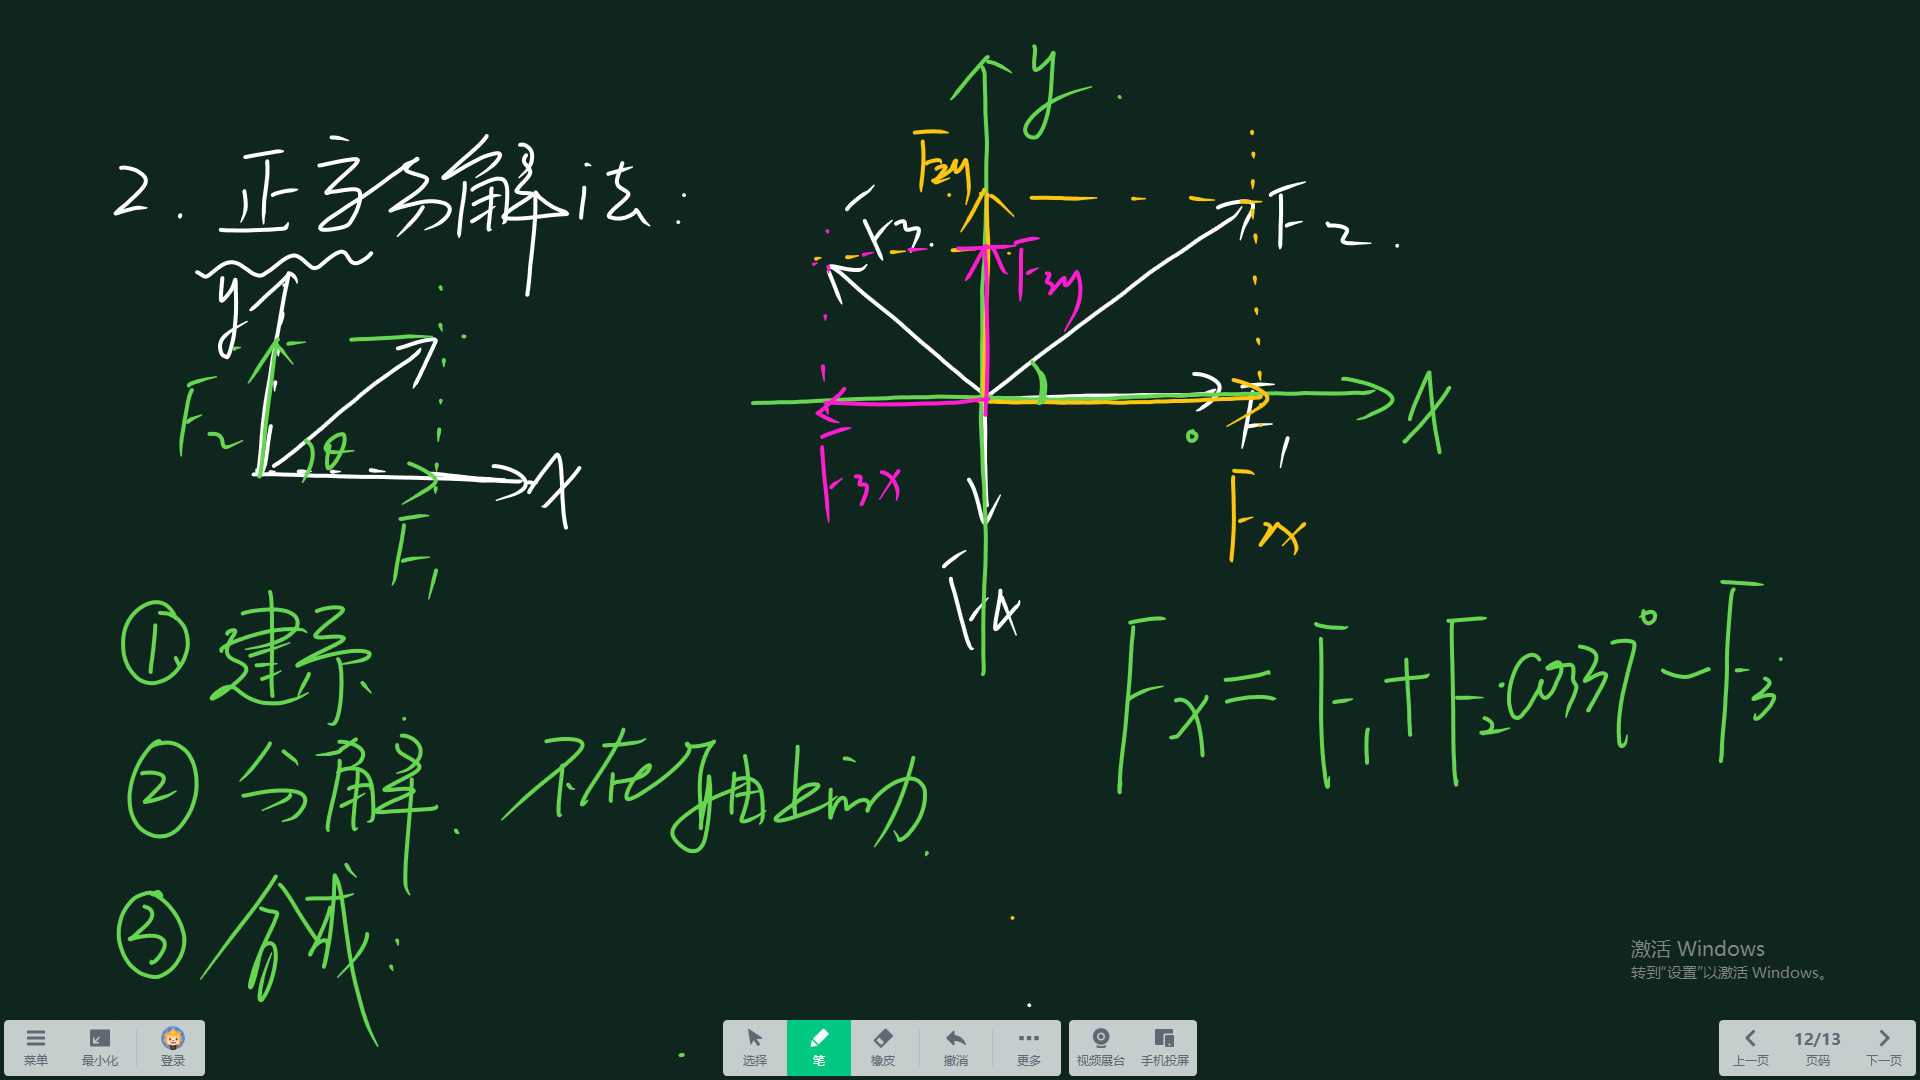 2. 正交分解法:
y
F₂
θ
X
F₁
y
F2y
F₃
F3y
F₂
X
F₁
F3x
F2x
F4
① 建系
② 分解. 不在轴上的力
③ 合成:
Fx = F₁ + F₂cos37° - F₃
激活 Windows
转到“设置”以激活 Windows。
菜单 最小化 登录
选择 笔 橡皮 撤消 更多
视频展台 手机投屏
上一页 12/13 页码 下一页